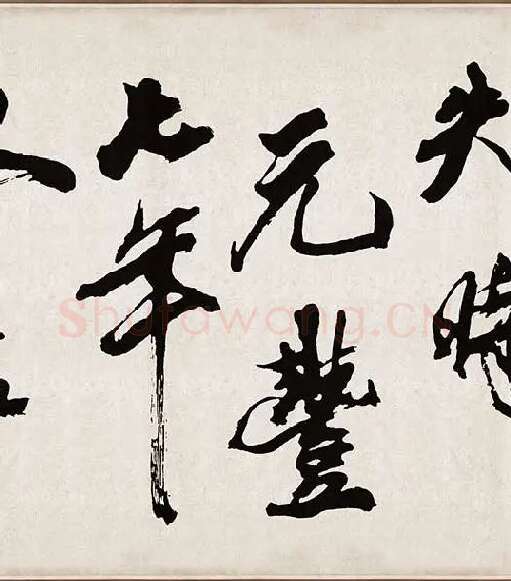 失時
元豐
七年
Shufawang.CN